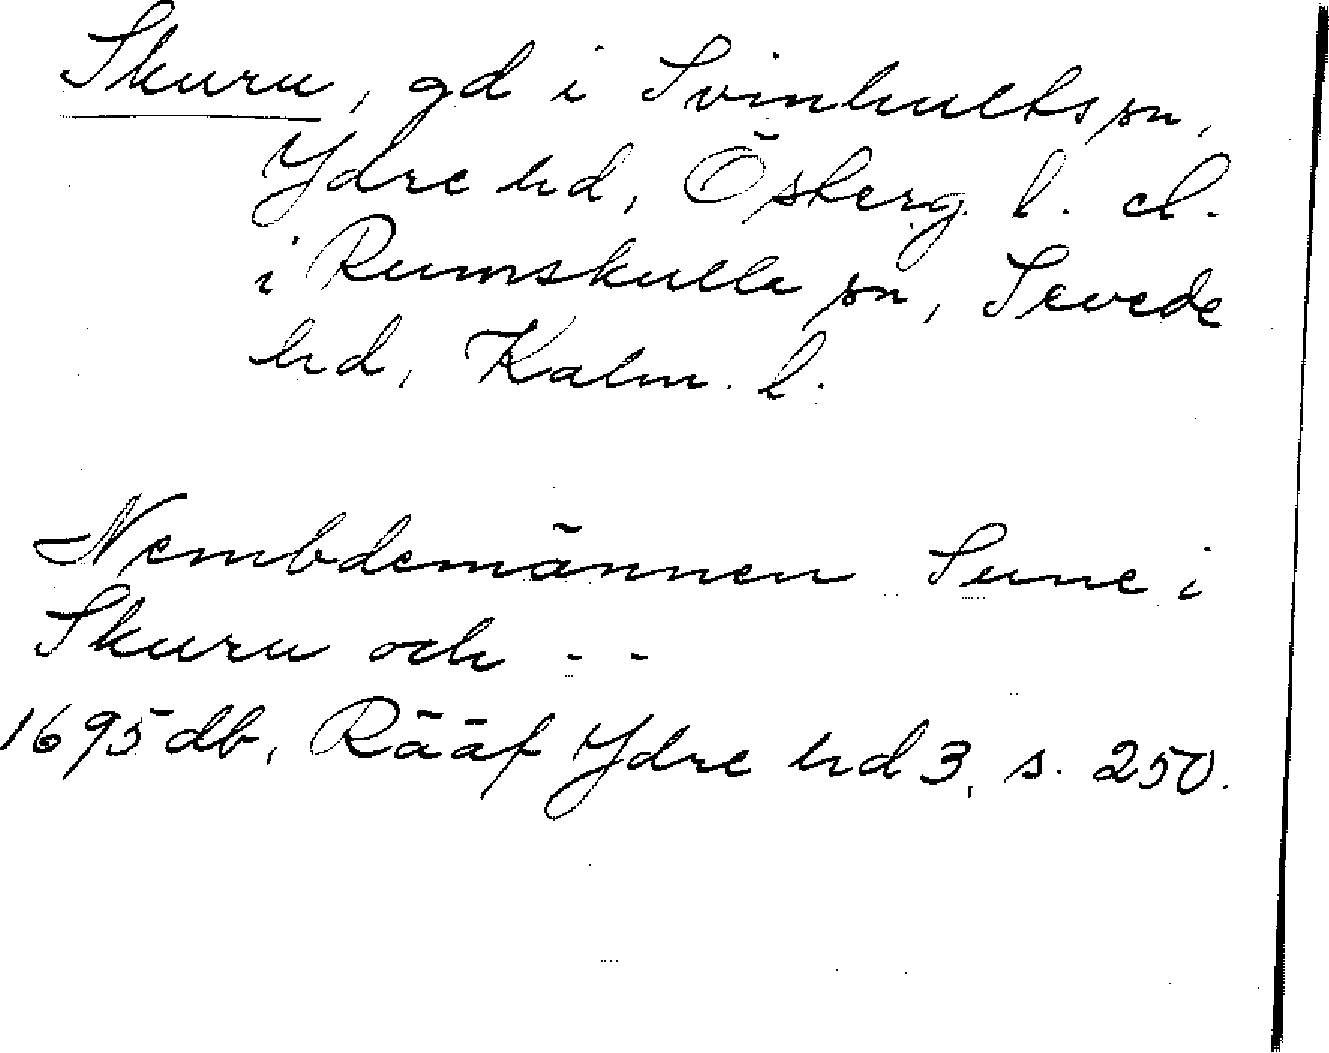 Skuru, gd i Svinhults sn,
Ydre hd, Östergö. l. el.
i Rumskulla sn, Sevede
hd, Kalm. l.
Nembdemännen Sune i
Skuru och - -
1695 db, Rääf Ydre hd 3, s. 250.